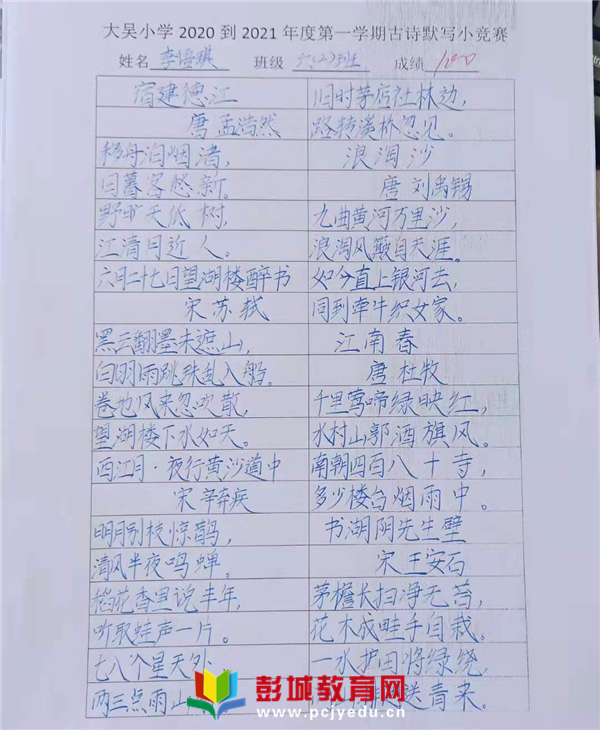 大吴小学2020到2021年度第一学期古诗默写小竞赛
姓名 李 琪 班级 六(2)班 成绩 100
宿建德江
唐 孟浩然
移舟泊烟渚,
日暮客愁新。
野旷天低树,
江清月近人。
六月二十七日望湖楼醉书
宋 苏轼
黑云翻墨未遮山,
白雨跳珠乱入船。
卷地风来忽吹散,
望湖楼下水如天。
西江月·夜行黄沙道中
宋 辛弃疾
明月别枝惊鹊,
清风半夜鸣蝉。
稻花香里说丰年,
听取蛙声一片。
七八个星天外
两三点雨山
旧时茅店社林边,
路转溪桥忽见。
浪淘沙
唐 刘禹锡
九曲黄河万里沙,
浪淘风簸自天涯。
如今直上银河去,
同到牵牛织女家。
江南春
唐 杜牧
千里莺啼绿映红,
水村山郭酒旗风。
南朝四百八十寺,
多少楼台烟雨中。
书湖阴先生壁
宋 王安石
茅檐长扫净无苔,
花木成畦手自栽。
一水护田将绿绕,
送青来。
彭城教育网
www.pcjyedu.cn